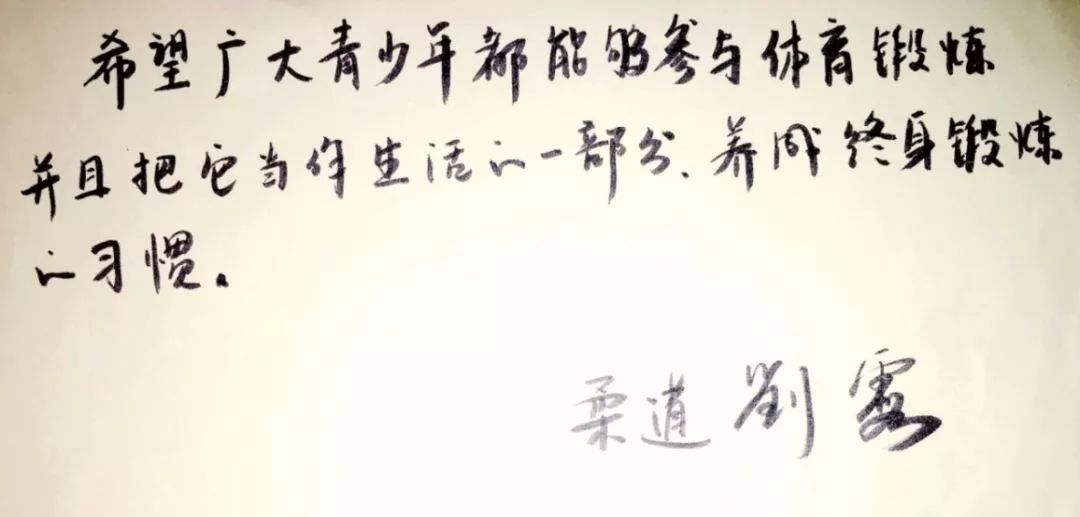 希望广大青少年都能够参与体育锻炼
并且把它当作生活的一部分、养成终身锻炼
的习惯。
柔道 劉霞